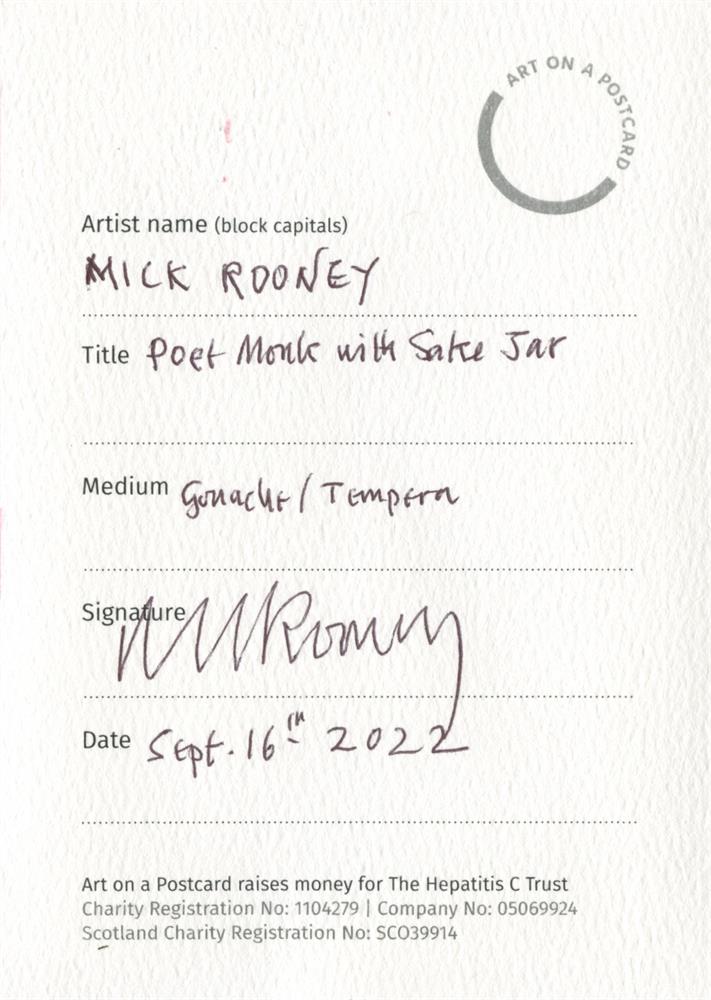 ART ON A POSTCARD
Artist name (block capitals)
MICK ROONEY
Title Poet Monk with Sake Jar
Medium Gouache/Tempera
Signature MRooney
Date Sept. 16TH 2022
Art on a Postcard raises money for The Hepatitis C Trust
Charity Registration No: 1104279 | Company No: 05069924
Scotland Charity Registration No: SCO39914